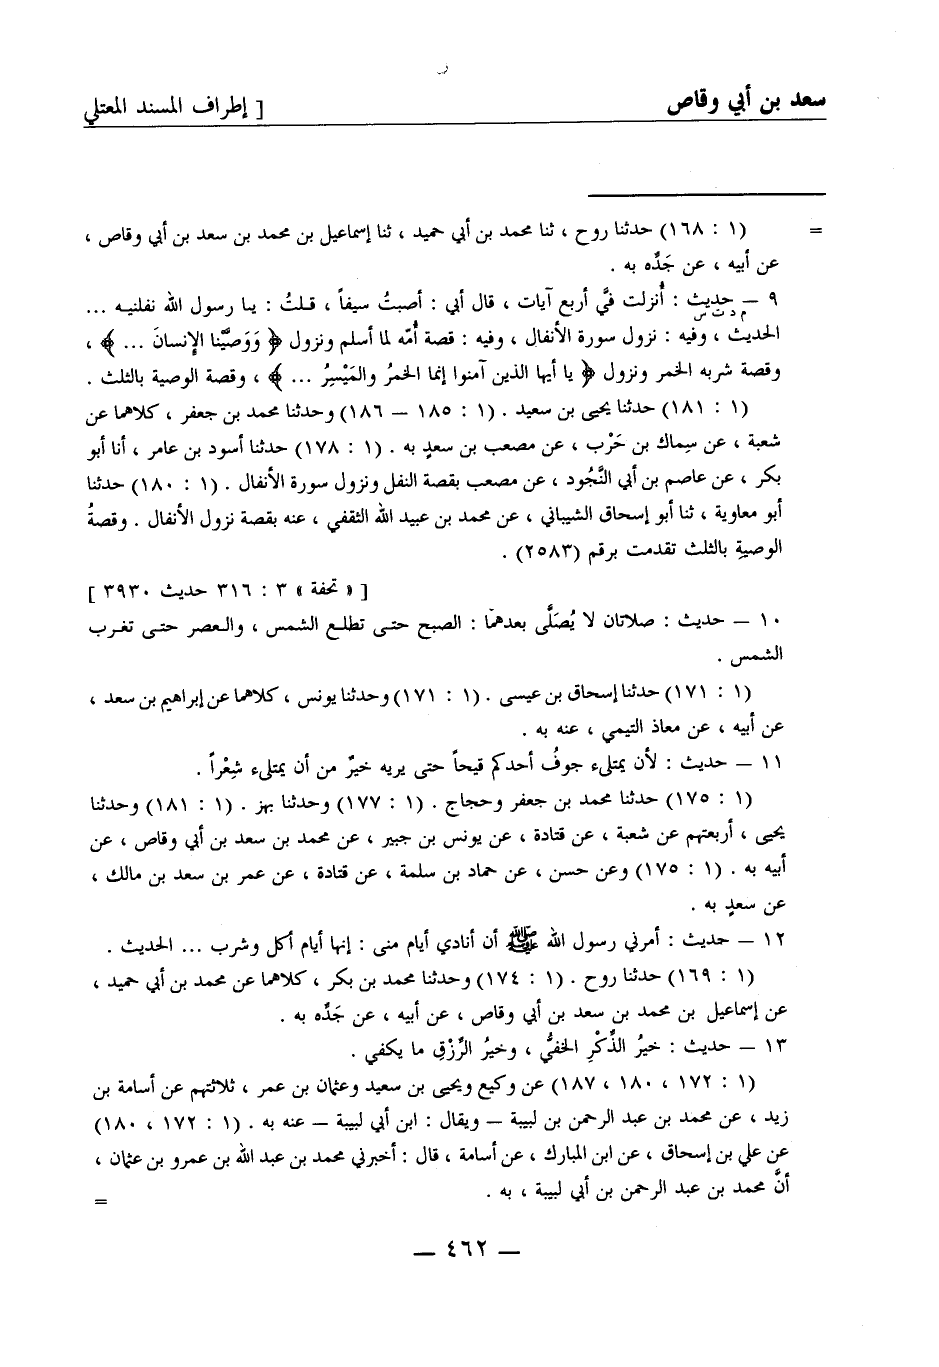 سعد بن أبي وقاص [ إطراف المسند المعتلي
= (١ : ١٦٨) حدثنا روح ، ثنا محمد بن أبي حميد ، ثنا إسماعيل بن محمد بن سعد بن أبي وقاص ،
عن أبيه ، عن جَدِّه به .
٩ — حديث : أُنزلت فيَّ أربع آيات ، قال أبي : أصبتُ سيفاً ، قلتُ : يا رسول الله نفلنيه ...
م د ت س
الحديث ، وفيه : نزول سورة الأنفال ، وفيه : قصة أُمّه لما أسلم ونزول ﴿ وَوَصَّيْنا الإنسانَ ... ﴾ ،
وقصة شربه الخمر ونزول ﴿ يا أيها الذين آمنوا إنما الخمرُ والمَيْسِرُ ... ﴾ ، وقصة الوصية بالثلث .
(١ : ١٨١) حدثنا يحيى بن سعيد . (١ : ١٨٥ — ١٨٦) وحدثنا محمد بن جعفر ، كلاهما عن
شعبة ، عن سِماك بن حَرْب ، عن مصعب بن سعدٍ به . (١ : ١٧٨) حدثنا أسود بن عامر ، أنا أبو
بكر ، عن عاصم بن أبي النَّجُود ، عن مصعب بقصة النفل ونزول سورة الأنفال . (١ : ١٨٠) حدثنا
أبو معاوية ، ثنا أبو إسحاق الشيباني ، عن محمد بن عبيد الله الثقفي ، عنه بقصة نزول الأنفال . وقصةُ
الوصيةِ بالثلث تقدمت برقم (٢٥٨٣) .
[ « تحفة » ٣ : ٣١٦ حديث ٣٩٣٠ ]
١٠ — حديث : صلاتان لا يُصَلَّى بعدهما : الصبح حتى تطلع الشمس ، والعصر حتى تغرب
الشمس .
(١ : ١٧١) حدثنا إسحاق بن عيسى . (١ : ١٧١) وحدثنا يونس ، كلاهما عن إبراهيم بن سعد ،
عن أبيه ، عن معاذ التيمي ، عنه به .
١١ — حديث : لأن يمتلىء جوفُ أحدكم قيحاً حتى يريه خيرٌ من أن يمتلىء شِعْراً .
(١ : ١٧٥) حدثنا محمد بن جعفر وحجاج . (١ : ١٧٧) وحدثنا بهز . (١ : ١٨١) وحدثنا
يحيى ، أربعتهم عن شعبة ، عن قتادة ، عن يونس بن جبير ، عن محمد بن سعد بن أبي وقاص ، عن
أبيه به . (١ : ١٧٥) وعن حسن ، عن حماد بن سلمة ، عن قتادة ، عن عمر بن سعد بن مالك ،
عن سعدٍ به .
١٢ — حديث : أمرني رسول الله ﷺ أن أنادي أيام منى : إنها أيام أكل وشرب ... الحديث .
(١ : ١٦٩) حدثنا روح . (١ : ١٧٤) وحدثنا محمد بن بكر ، كلاهما عن محمد بن أبي حميد ،
عن إسماعيل بن محمد بن سعد بن أبي وقاص ، عن أبيه ، عن جَدِّه به .
١٣ — حديث : خيرُ الذِّكْرِ الخفيُّ ، وخيرُ الرِّزْقِ ما يكفي .
(١ : ١٧٢ ، ١٨٠ ، ١٨٧) عن وكيع ويحيى بن سعيد وعثمان بن عمر ، ثلاثتهم عن أسامة بن
زيد ، عن محمد بن عبد الرحمن بن لبيبة — ويقال : ابن أبي لبيبة — عنه به . (١ : ١٧٢ ، ١٨٠)
عن علي بن إسحاق ، عن ابن المبارك ، عن أسامة ، قال : أخبرني محمد بن عبد الله بن عمرو بن عثمان ،
أنَّ محمد بن عبد الرحمن بن أبي لبيبة ، به . =
— ٤٦٢ —